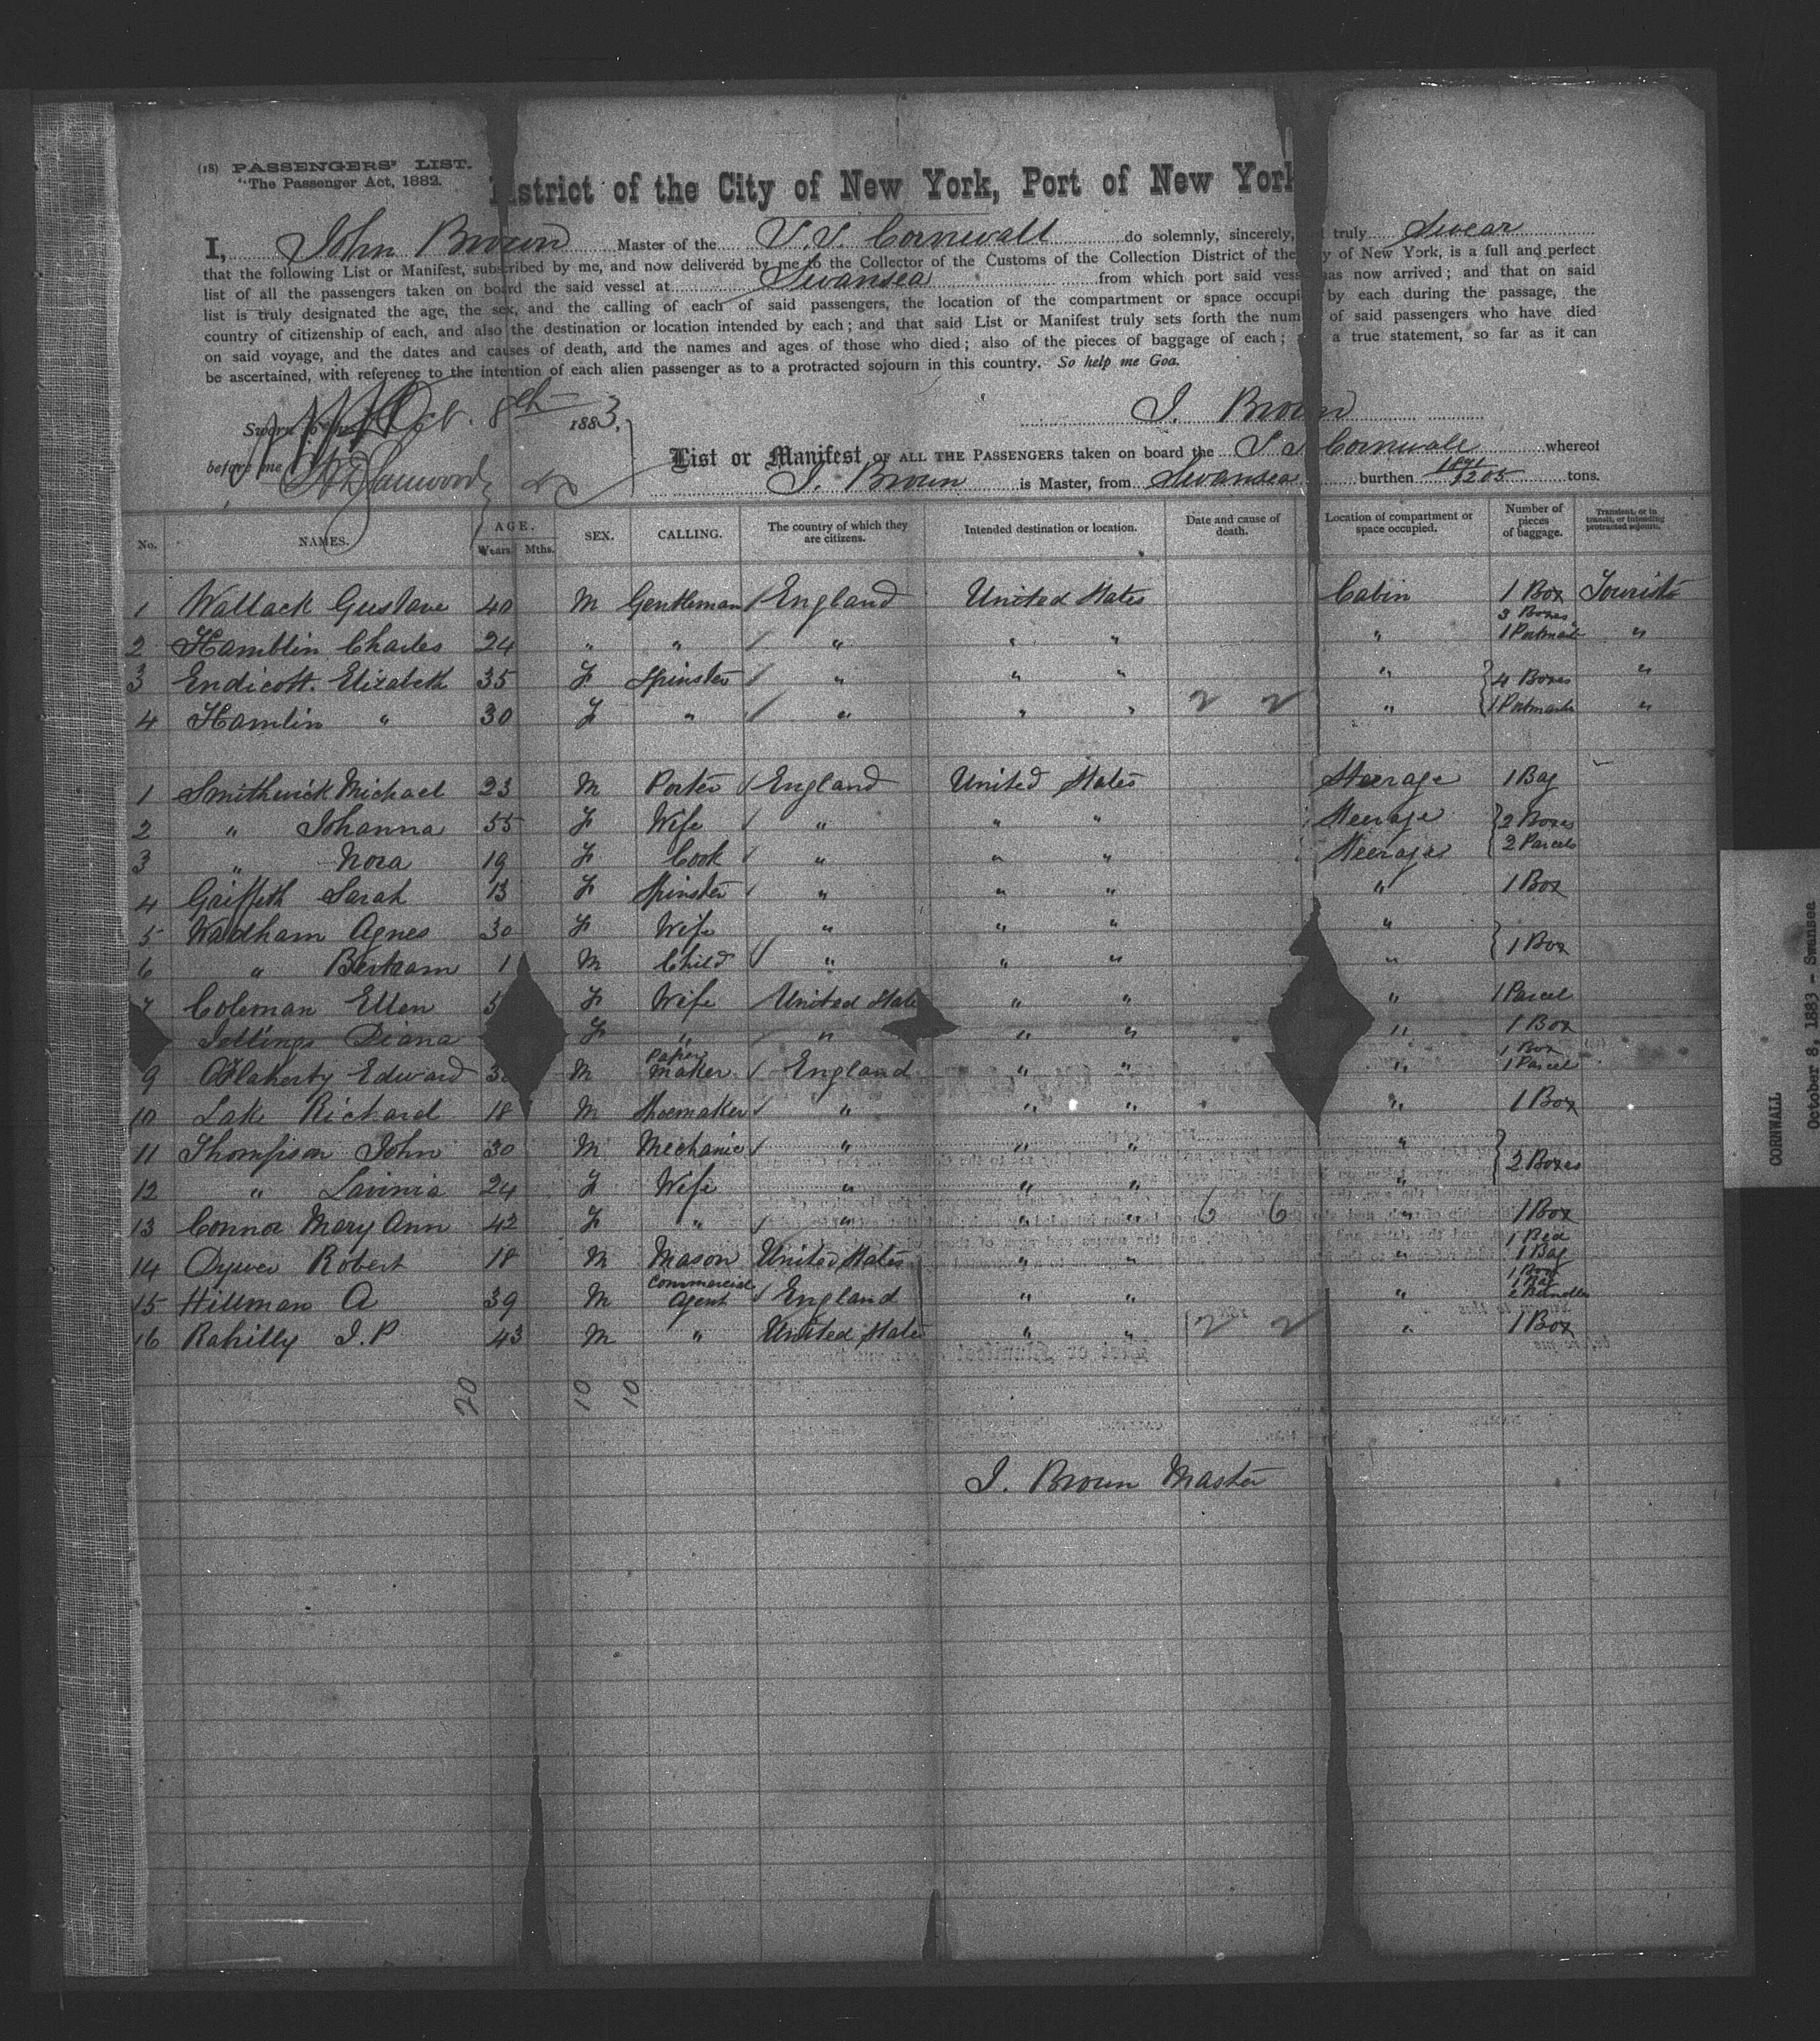 (18) PASSENGERS' LIST.
"The Passenger Act, 1882.
District of the City of New York, Port of New York
I, John Brown Master of the S.S. Cornwall do solemnly, sincerely, and truly Swear
that the following List or Manifest, subscribed by me, and now delivered by me to the Collector of the Customs of the Collection District of the City of New York, is a full and perfect
list of all the passengers taken on board the said vessel at Swansea from which port said vessel has now arrived; and that on said
list is truly designated the age, the sex, and the calling of each of said passengers, the location of the compartment or space occupied by each during the passage, the
country of citizenship of each, and also the destination or location intended by each; and that said List or Manifest truly sets forth the number of said passengers who have died
on said voyage, and the dates and causes of death, and the names and ages of those who died; also of the pieces of baggage of each; a true statement, so far as it can
be ascertained, with reference to the intention of each alien passenger as to a protracted sojourn in this country. So help me God.
Sworn to Oct. 8th 1883,
J. Brown
before me
List or Manifest OF ALL THE PASSENGERS taken on board the S S Cornwall whereof
J. Brown is Master, from Swansea burthen 1205 tons.
No. NAMES. AGE. Years. Mths. SEX. CALLING. The country of which they are citizens. Intended destination or location. Date and cause of death. Location of compartment or space occupied. Number of pieces of baggage. Transient, or in transit, or intending protracted sojourn.
1 Wallack Gustave 40 M Gentleman England United States Cabin 1 Box Tourist
2 Hamblin Charles 24 " " " " " " 3 Boxes 1 Portmant "
3 Endicott Elizabeth 35 F Spinster " " " " 4 Boxes "
4 Hamlin " 30 F " " " " 2 2 " 1 Portmant "
1 Smithwick Michael 23 M Porter England United States Steerage 1 Bag
2 " Johanna 55 F Wife " " " Steerage 2 Boxes
3 " Nora 19 F Cook " " " Steerage 2 Parcels
4 Griffeth Sarah 13 F Spinster " " " " 1 Box
5 Wadham Agnes 30 F Wife " " " " 1 Box
6 " Bertram 1 M Child " " " "
7 Coleman Ellen 5 F Wife United State " " " 1 Parcel
Jellings Diana F " " " " " 1 Box
9 O'Flaherty Edward 3 M Paper Maker England " " " 1 Box 1 Parcel
10 Lak Richard 18 M Shoemaker " " " " 1 Box
11 Thompson John 30 M Mechanic " " " " 2 Boxes
12 " Lavinia 24 F Wife " " " "
13 Connor Mary Ann 42 F " " " " 6 6 " 1 Box
14 Robert 18 M Mason United States " " " 1 Bed 1 Bag
15 Hillman A 39 M Commercial Agent England " " " 1 Box 1 Bag 2 Bundles
16 Rahilly J. P 43 M " United State " " 2 2 " 1 Box
20 10 10
J. Brown Master
CORNWALL
October 8, 1883 - Swansea